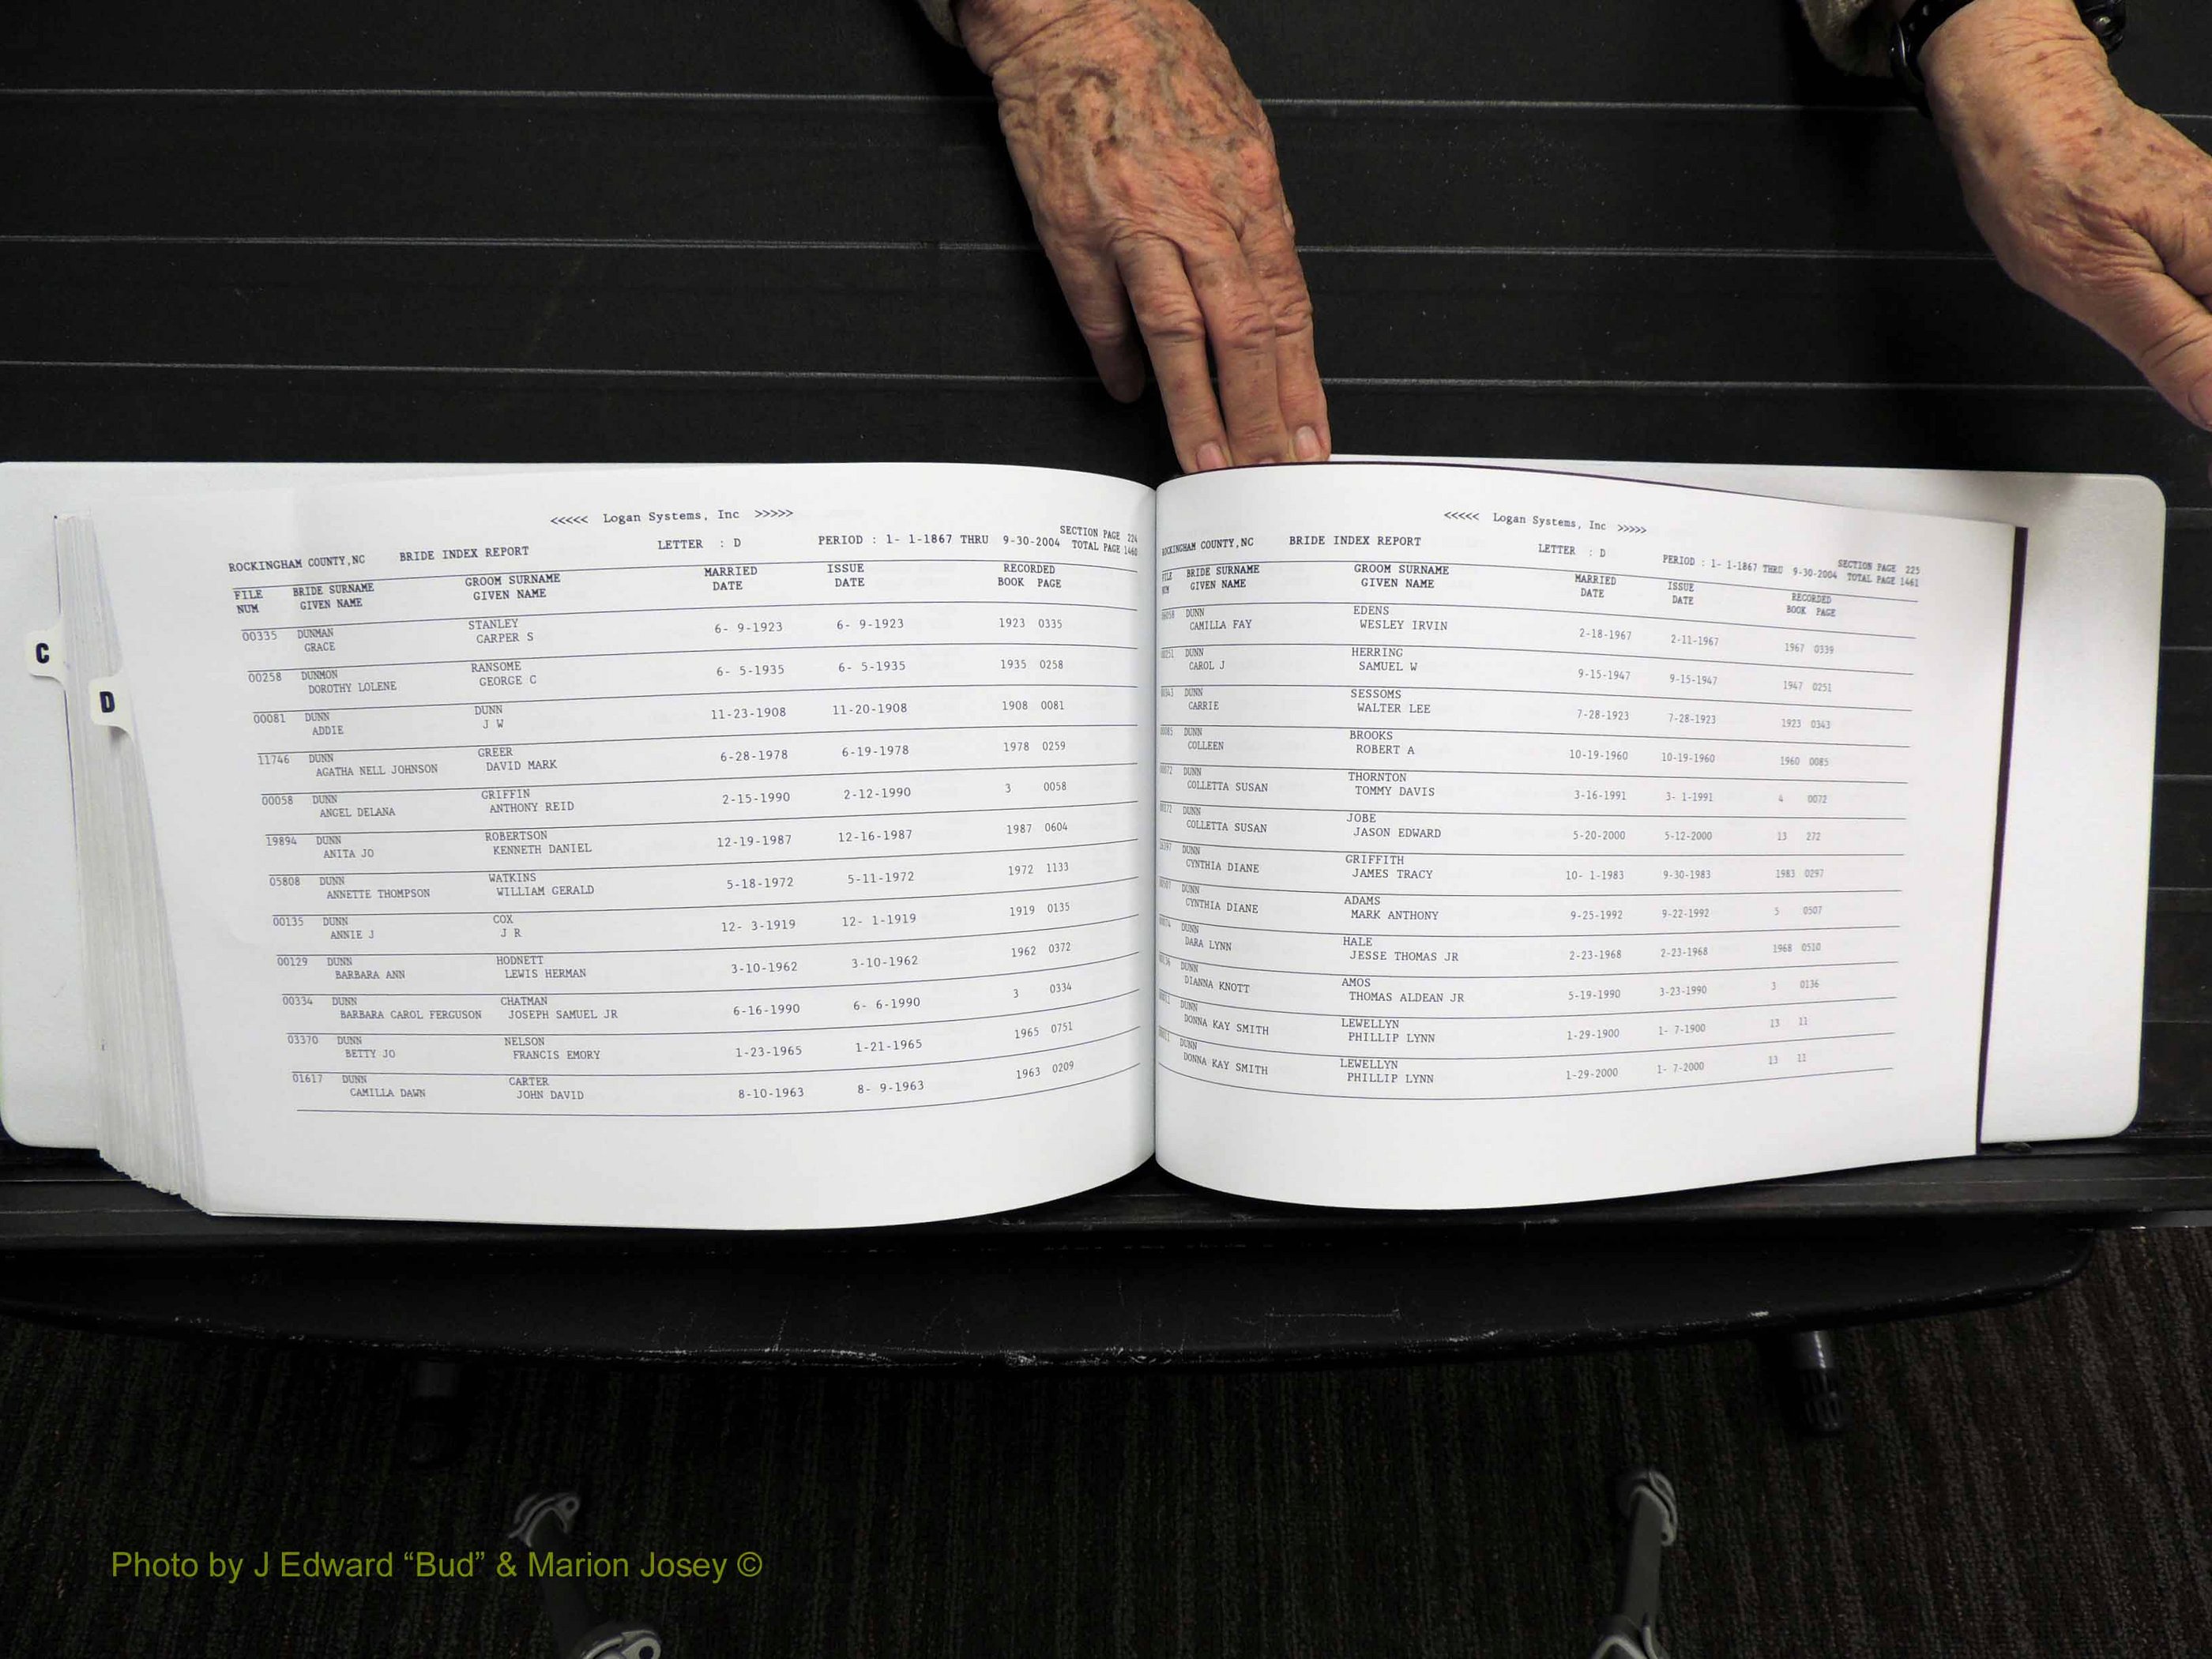 C
D
<<<<< Logan Systems, Inc >>>>>
SECTION PAGE 224
ROCKINGHAM COUNTY,NC BRIDE INDEX REPORT LETTER : D PERIOD : 1- 1-1867 THRU 9-30-2004 TOTAL PAGE 1460
FILE BRIDE SURNAME GROOM SURNAME MARRIED ISSUE RECORDED
NUM GIVEN NAME GIVEN NAME DATE DATE BOOK PAGE
00335 DUNMAN STANLEY 6- 9-1923 6- 9-1923 1923 0335
GRACE CARPER S
00258 DUNMON RANSOME 6- 5-1935 6- 5-1935 1935 0258
DOROTHY LOLENE GEORGE C
00081 DUNN DUNN 11-23-1908 11-20-1908 1908 0081
ADDIE J W
11746 DUNN GREER 6-28-1978 6-19-1978 1978 0259
AGATHA NELL JOHNSON DAVID MARK
00058 DUNN GRIFFIN 2-15-1990 2-12-1990 3 0058
ANGEL DELANA ANTHONY REID
19894 DUNN ROBERTSON 12-19-1987 12-16-1987 1987 0604
ANITA JO KENNETH DANIEL
05808 DUNN WATKINS 5-18-1972 5-11-1972 1972 1133
ANNETTE THOMPSON WILLIAM GERALD
00135 DUNN COX 12- 3-1919 12- 1-1919 1919 0135
ANNIE J J R
00129 DUNN HODNETT 3-10-1962 3-10-1962 1962 0372
BARBARA ANN LEWIS HERMAN
00334 DUNN CHATMAN 6-16-1990 6- 6-1990 3 0334
BARBARA CAROL FERGUSON JOSEPH SAMUEL JR
03370 DUNN NELSON 1-23-1965 1-21-1965 1965 0751
BETTY JO FRANCIS EMORY
01617 DUNN CARTER 8-10-1963 8- 9-1963 1963 0209
CAMILLA DAWN JOHN DAVID
<<<<< Logan Systems, Inc >>>>>
SECTION PAGE 225
ROCKINGHAM COUNTY,NC BRIDE INDEX REPORT LETTER : D PERIOD : 1- 1-1867 THRU 9-30-2004 TOTAL PAGE 1461
FILE BRIDE SURNAME GROOM SURNAME MARRIED ISSUE RECORDED
GIVEN NAME GIVEN NAME DATE DATE BOOK PAGE
DUNN EDENS 2-18-1967 2-11-1967 1967 0339
CAMILLA FAY WESLEY IRVIN
DUNN HERRING 9-15-1947 9-15-1947 1947 0251
CAROL J SAMUEL W
DUNN SESSOMS 7-28-1923 7-28-1923 1923 0343
CARRIE WALTER LEE
DUNN BROOKS 10-19-1960 10-19-1960 1960 0085
COLLEEN ROBERT A
DUNN THORNTON 3-16-1991 3- 1-1991 4 0072
COLLETTA SUSAN TOMMY DAVIS
DUNN JOBE 5-20-2000 5-12-2000 13 272
COLLETTA SUSAN JASON EDWARD
DUNN GRIFFITH 10- 1-1983 9-30-1983 1983 0297
CYNTHIA DIANE JAMES TRACY
DUNN ADAMS 9-25-1992 9-22-1992 5 0507
CYNTHIA DIANE MARK ANTHONY
DUNN HALE 2-23-1968 2-23-1968 1968 0510
DARA LYNN JESSE THOMAS JR
DUNN AMOS 5-19-1990 3-23-1990 3 0136
DIANNA KNOTT THOMAS ALDEAN JR
DUNN LEWELLYN 1-29-1900 1- 7-1900 13 11
DONNA KAY SMITH PHILLIP LYNN
DUNN LEWELLYN 1-29-2000 1- 7-2000 13 11
DONNA KAY SMITH PHILLIP LYNN
Photo by J Edward “Bud” & Marion Josey ©